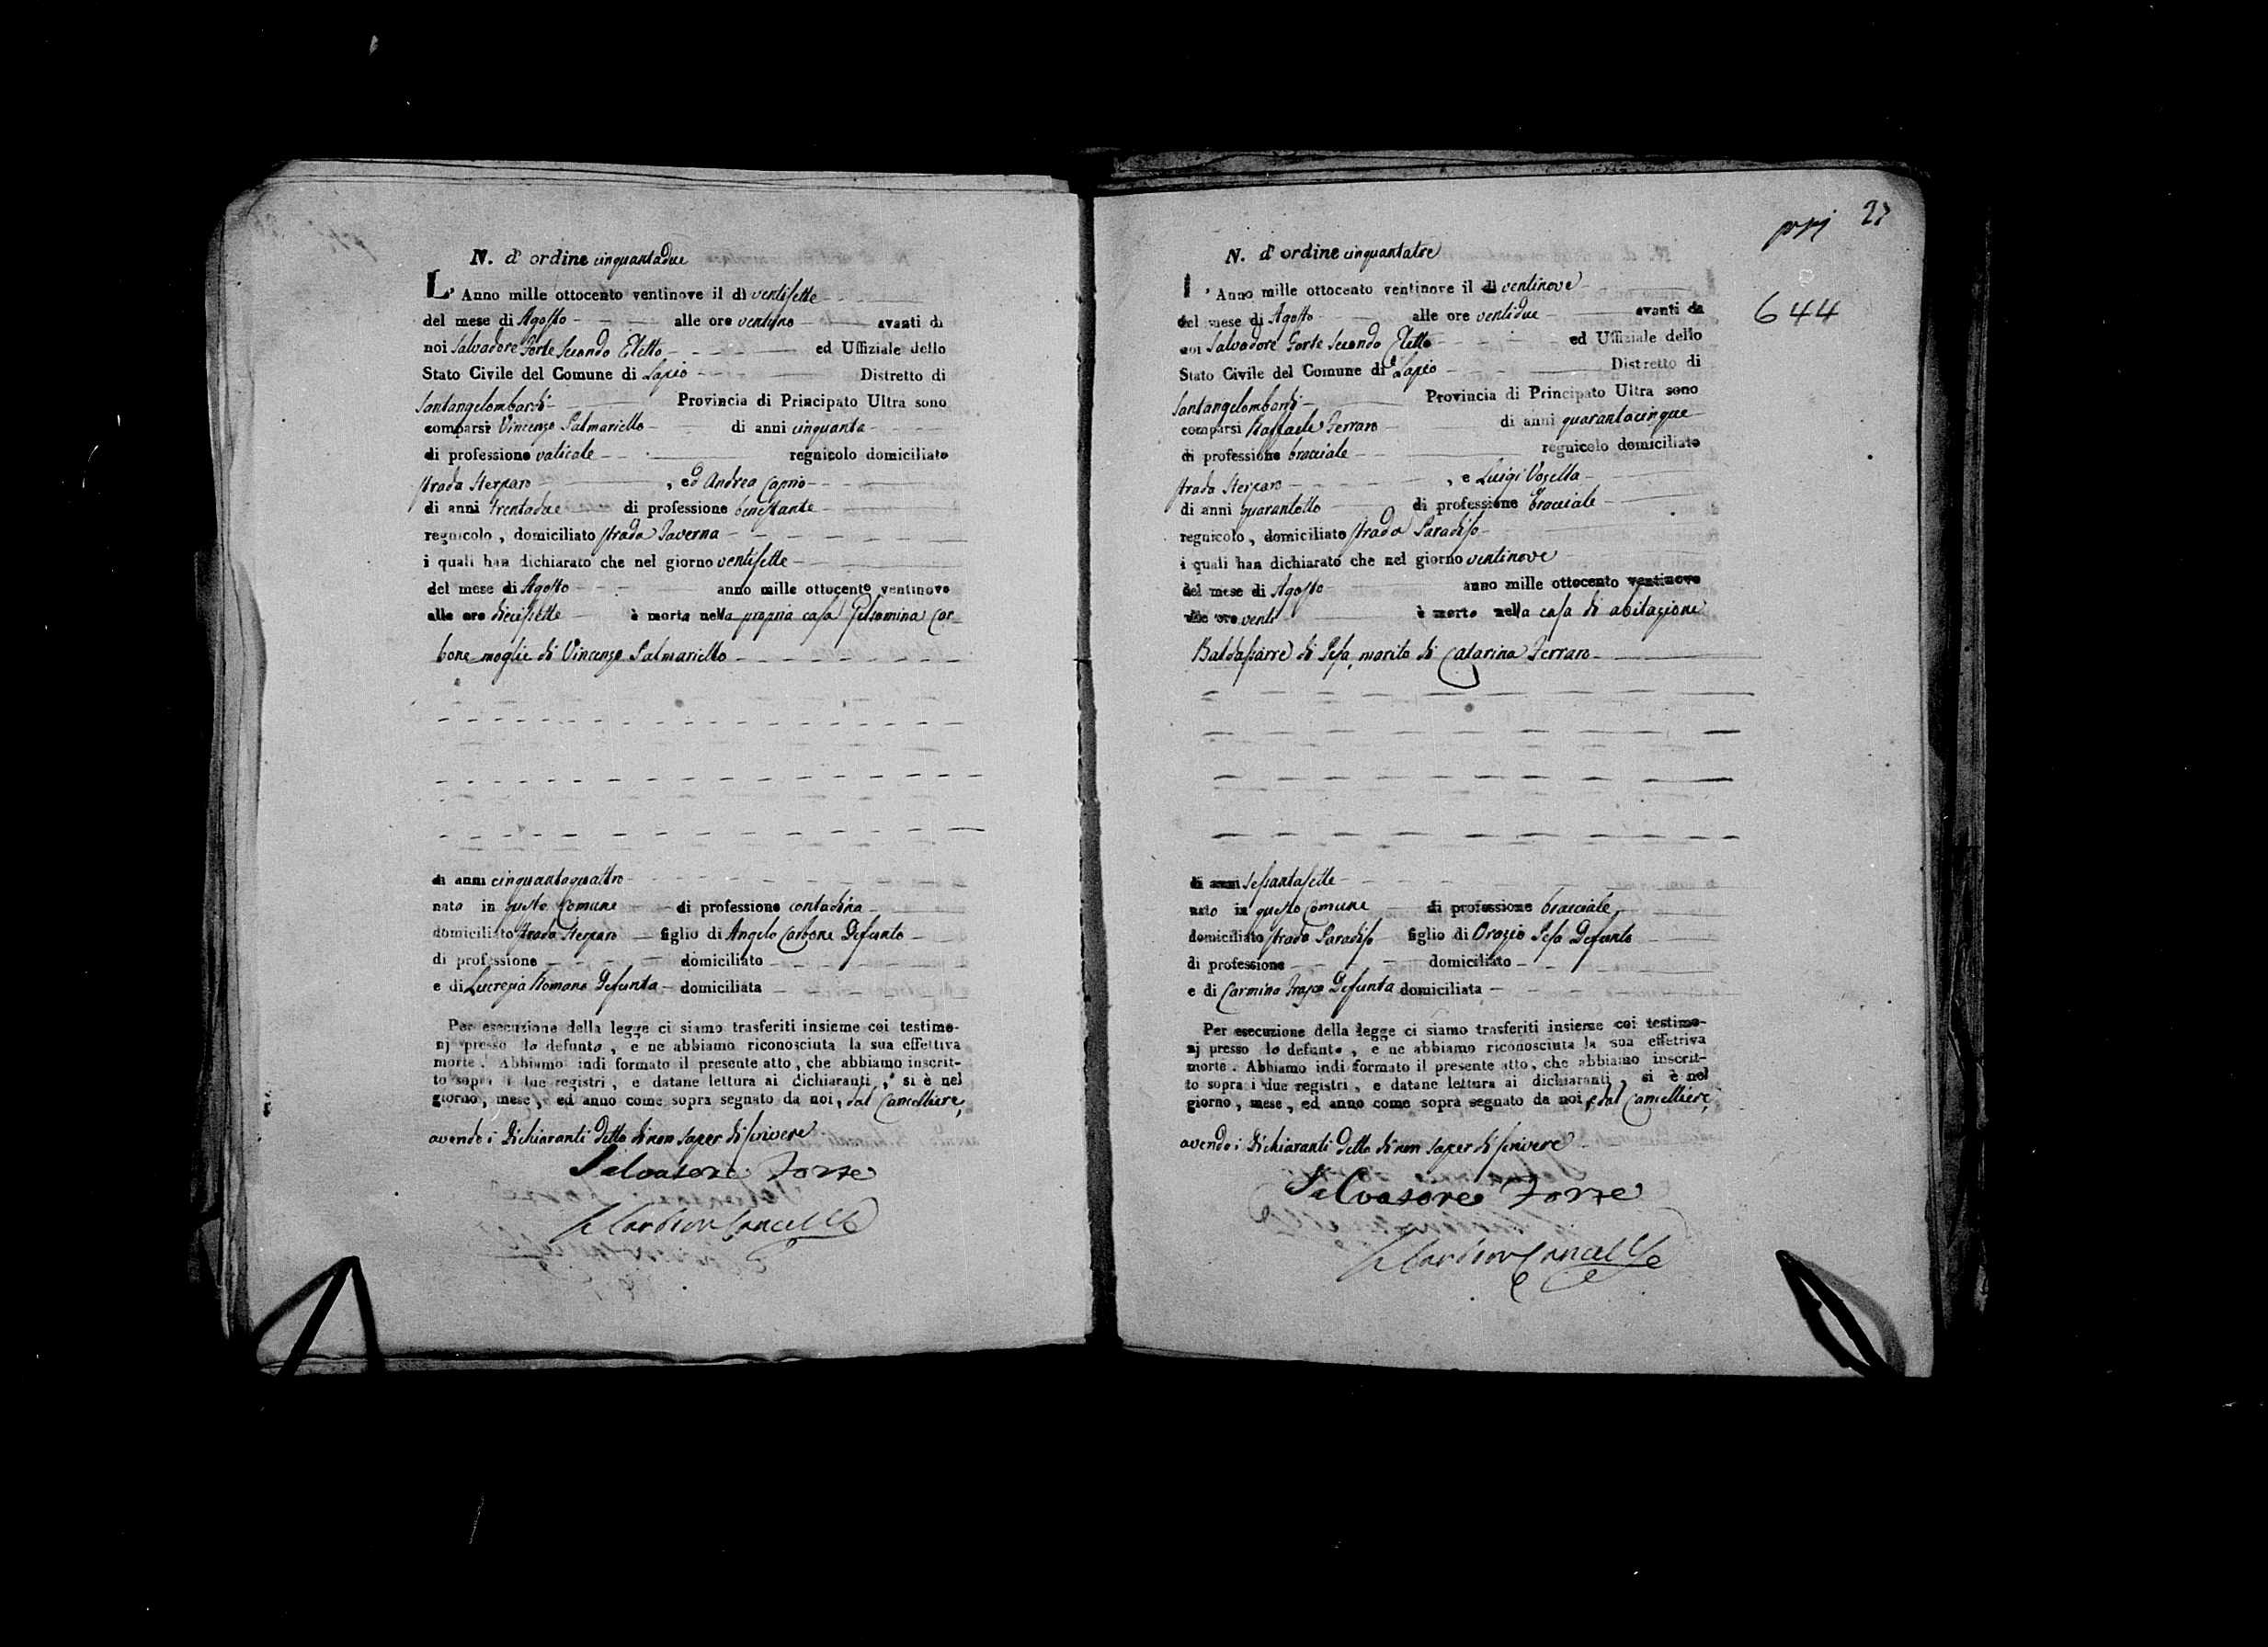 N. d' ordine cinquantadue
L' Anno mille ottocento ventinove il dì ventisette
del mese di Agosto alle ore ventuno avanti di
noi Salvadore Forte Secondo Eletto ed Uffiziale dello
Stato Civile del Comune di Lapio Distretto di
Santangelombardi Provincia di Principato Ultra sono
comparsi Vincenzo Palmariello di anni cinquanta
di professione vaticale regnicolo domiciliato
strada Sterparo , ed Andrea Caprio
di anni trentadue di professione benestante
regnicolo , domiciliato strada Taverna
i quali han dichiarato che nel giorno ventisette
del mese di Agosto anno mille ottocento ventinove
alle ore diecisette è morta nella propria casa Gelsomina Car-
bone moglie di Vincenzo Palmariello
di anni cinquantaquattro
nata in questo Comune di professione contadina
domiciliato strada Sterparo figlio di Angelo Carbone Defunto
di professione domiciliato
e di Lucrezia Romano Defunta domiciliata
Per esecuzione della legge ci siamo trasferiti insieme coi testimo-
nj presso la defunta , e ne abbiamo riconosciuta la sua effettiva
morte . Abbiamo indi formato il presente atto , che abbiamo inscrit-
to sopra i due registri , e datane lettura ai dichiaranti , si è nel
giorno , mese , ed anno come sopra segnato da noi, dal Cancelliere,
avendo i Dichiaranti detto di non saper di scrivere
Salvatore Forte
Carbone Cancell
27
644
N. d' ordine cinquantatre
L' Anno mille ottocento ventinove il dì ventinove
del mese di Agosto alle ore ventidue avanti di
noi Salvadore Forte Secondo Eletto ed Uffiziale dello
Stato Civile del Comune di Lapio Distretto di
Santangelombardi Provincia di Principato Ultra sono
comparsi Raffaele Ferraro di anni quarantacinque
di professione bracciale regnicolo domiciliato
strada Sterparo , e Luigi Vosella
di anni quarantotto di professione bracciale
regnicolo , domiciliato strada Paradiso
i quali han dichiarato che nel giorno ventinove
del mese di Agosto anno mille ottocento ventinove
alle ore venti è morto nella casa di abitazione
Baldassarre di Pesa, marito di Catarina Ferraro
di anni sessantasette
nato in questo Comune di professione bracciale
domiciliato strada Paradiso figlio di Orazio Pesa Defunto
di professione domiciliato
e di Carmina Defunta domiciliata
Per esecuzione della legge ci siamo trasferiti insieme coi testimo-
nj presso lo defunto , e ne abbiamo riconosciuta la sua effetriva
morte . Abbiamo indi formato il presente atto , che abbiamo inscrit-
to sopra i due registri , e datane lettura ai dichiaranti , si è nel
giorno , mese , ed anno come sopra segnato da noi , e dal Cancelliere,
avendo i Dichiaranti detto di non saper di scrivere
Salvatore Forte
Carbone Cancell